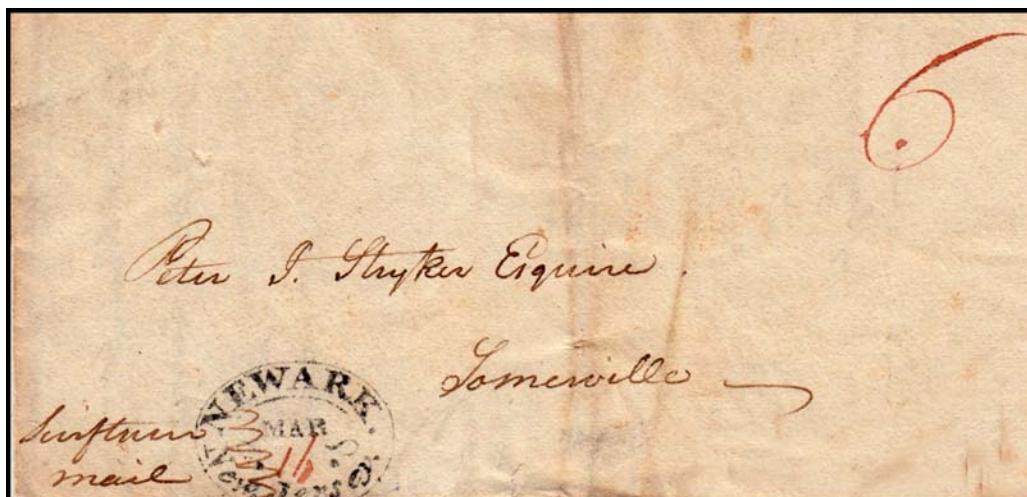 6
Peter I. Stryker Esquire.
Somerville
NEWARK.
MAR
11
New Jersey.
mail